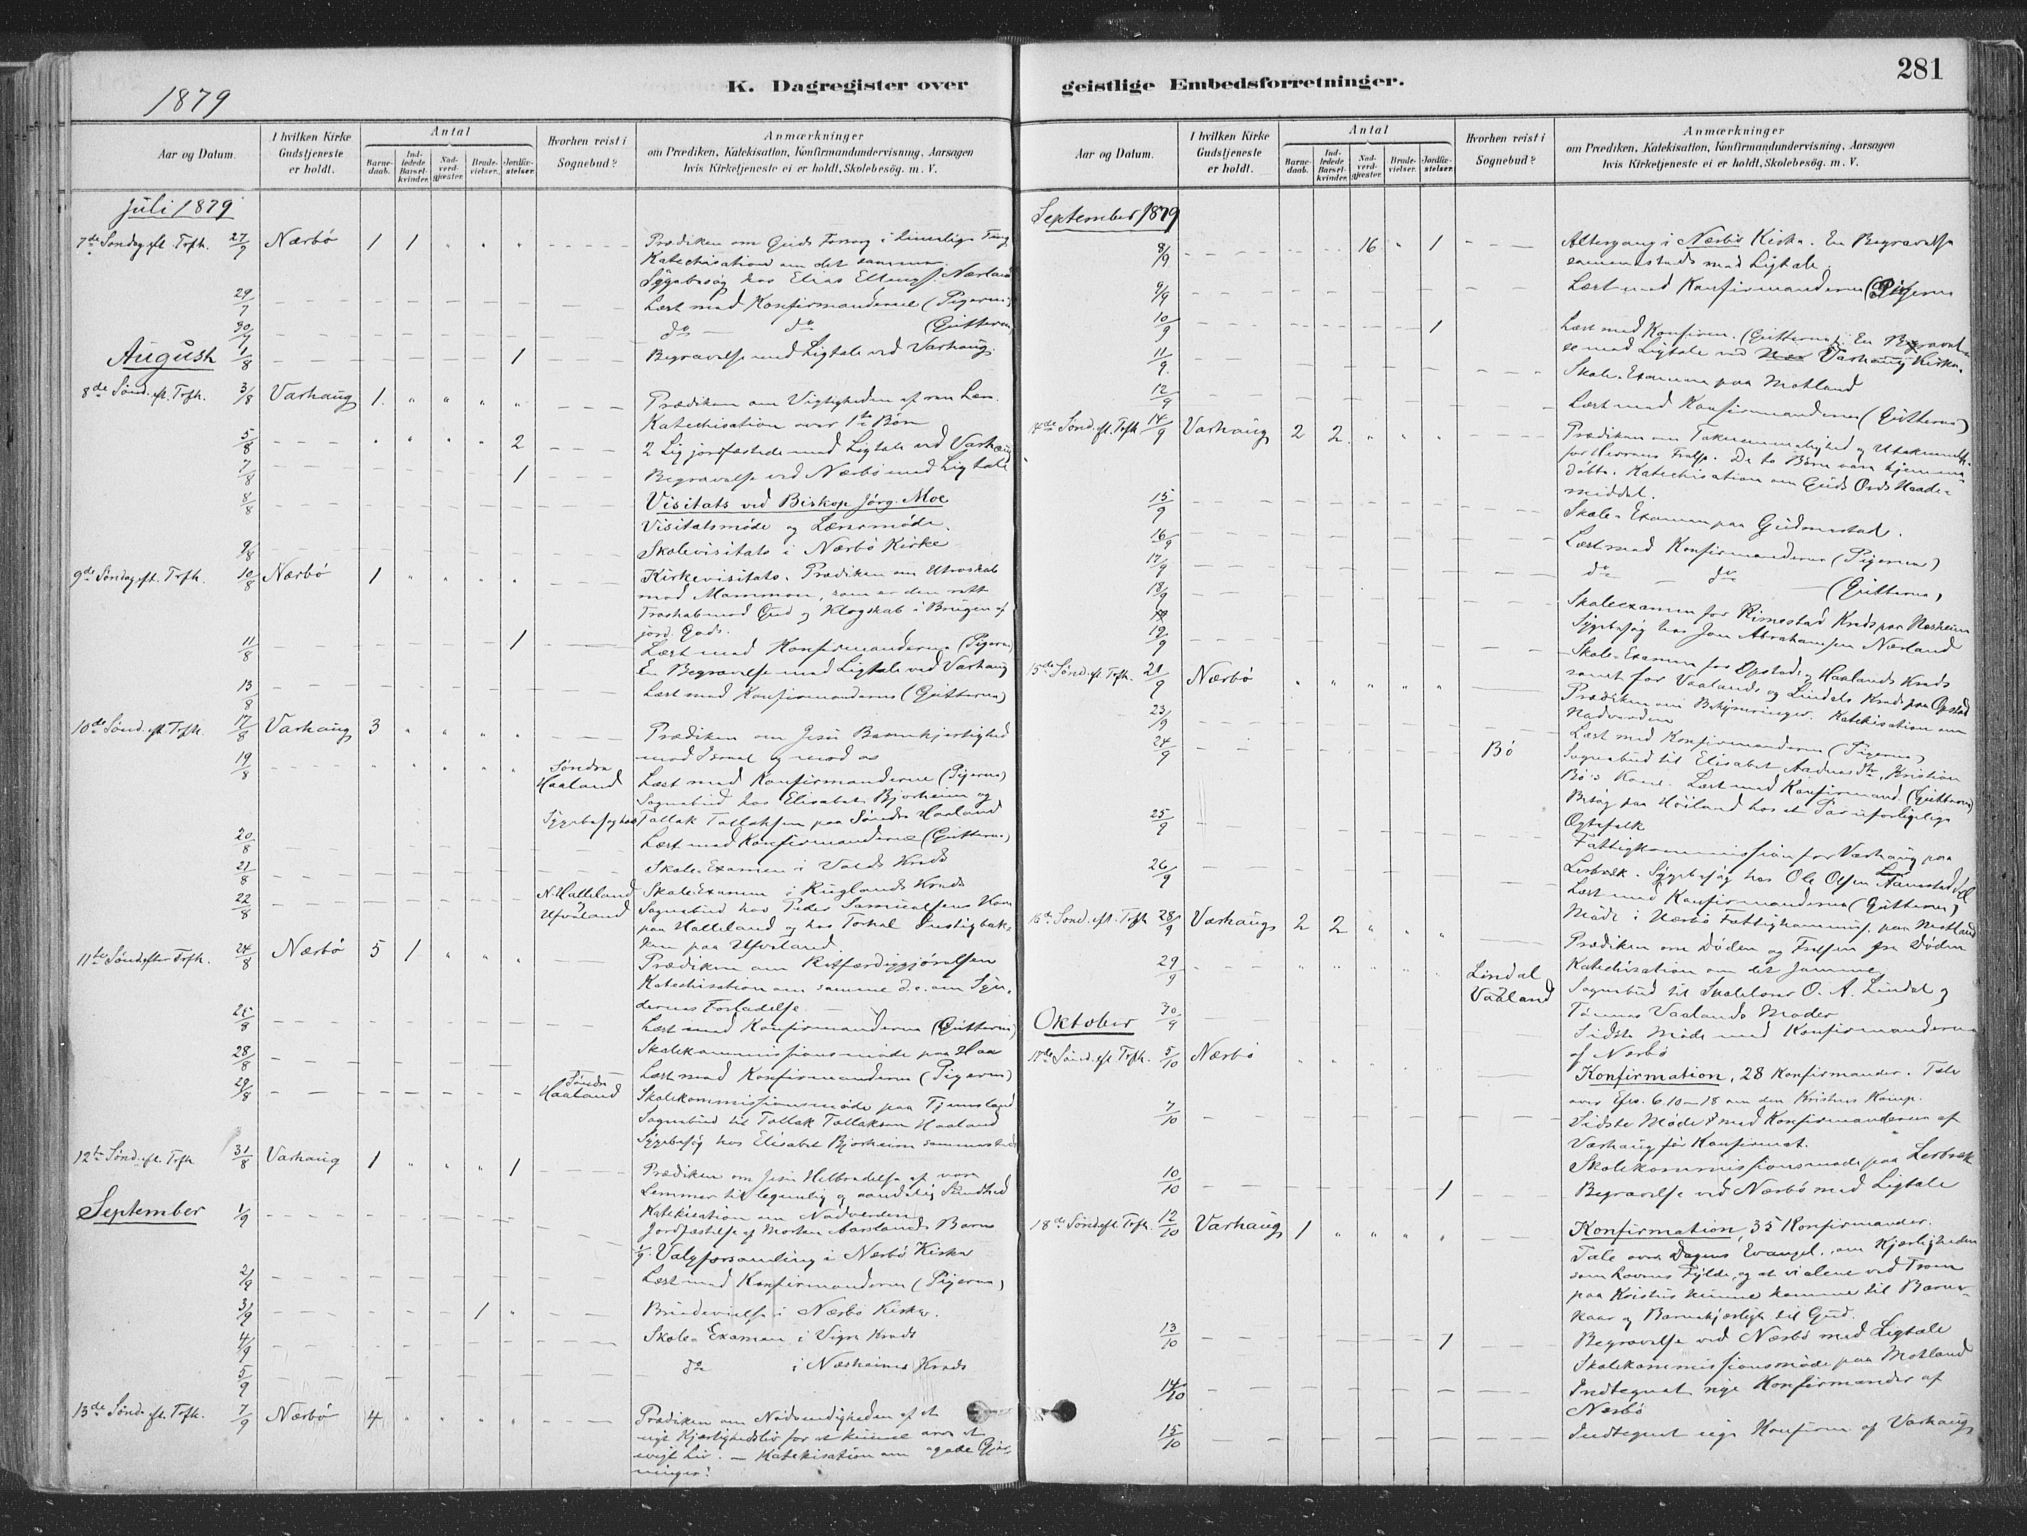 281
1879
K. Dagregister over
geistlige Embedsforretninger.
Aar og Datum.
I hvilken Kirke Gudstjeneste er holdt.
Antal
Barne-daab.
Ind-ledede Barsel-kvinder.
Nad-verd-gjæster.
Brude-vielser.
Jordfæ-stelser.
Hvorhen reist i Sognebud?
Anmærkninger
om Prædiken, Katekisation, Konfirmandundervisning, Aarsagen
hvis Kirketjeneste ei er holdt, Skolebesøg. m. V.
Juli 1879
7de Søndag eft. Trefh. 27/7 Nærbö 1 1 Prædiken om Guds Forsorg i timelige Ting
Katechisation om det samme.
Sygebesøg hos Elias Nærland
29/7 Læst med Konfirmanderne (Pigerne)
30/7 do do (Gutterne)
August 1/8 1 Begravelse med Ligtale ved Varhaug.
8de Sönd. eft. Trefh. 3/8 Varhaug 1 Prædiken om Vigtigheden af ren Lære.
Katechisation over 1te Bön
5/8 2 2 Lig jordfæstede med Ligtale ved Varhaug
7/8 1 Begravelse ved Nærbö med Ligtale
8/8 Visitats ved Biskop Jörg. Moe
Visitatsmøde og Lærermøde.
9/8 Skolevisitats i Nærbö Kirke
9de Söndag eft. Trefh. 10/8 Nærbö 1 Kirkevisitats. Prædiken om Utroskab
mod Mammon, som er den rette
Troskab mod Gud og Klogskab i Brugen af
jord. Gods.
11/8 1 Læst med Konfirmanderne (Pigerne)
En Begravelse med Ligtale ved Varhaug
13/8 Læst med Konfirmanderne (Gutterne)
10de Sönd. eft. Trefh. 17/8 Varhaug 3 Prædiken om Jesu Barmhjertighed
mod Israel og mod os
19/8 Söndre Haaland Læst med Konfirmanderne (Pigerne)
Sognebud hos Elisabet Bjorheim og
Sygebesøg hos Tollak Tollaksen paa Söndre Haaland
20/8 Læst med Konfirmanderne (Gutterne)
21/8 Skole-Examen i Kreds
22/8 N. Halleland Skole-Examen i Kuglands Kreds
Ufvaland Sognebud hos Peder Samuelsens Kone
paa Halleland og hos Torkel
paa Ufvaland.
11te Sönd. efter Trefh. 24/8 Nærbö 5 1 Prædiken om Retfærdiggjørelsen
Katechisation om samme d.e. om Syn-
dernes Forladelse.
/8 Læst med Konfirmanderne (Gutterne)
28/8 Skolekommissionsmøde paa Haa
Læst med Konfirmanderne (Pigerne)
29/8 Söndre Haaland Skolekommissionsmøde paa
Sognebud til Tollak Tollaksen Haaland
Sygebesøg hos Elisabet Bjorheim sammesteds
12te Sönd. eft. Trefh 31/8 Varhaug 1 1 Prædiken om Jesu Helbredelse af vore
Lemmer til legemlig og aandelig Sundhed
Katekisation om Nadverden
September 1/9 Jordfæstelse af Morten Aarslands Barn
1/9. Valgforsamling i Nærbö Kirke
2/9 Læst med Konfirmanderne (Pigerne)
3/9 1 Brudevielse i Nærbö Kirke.
4/9 Skole-Examen i Vigre Kreds
5/9 do i Næsheims Kreds
13de Sönd. eft. Trefh. 7/9 Nærbö 4 Prædiken om Nödvendigheden af et
nyt Kjærlighedsliv for at kunne arve et
evigt Liv. — Katekisation om gode Gjer-
ninger.
September 1879
8/9 16 1 Altergang i Nærbö Kirke. En Begravelse
sammesteds med Ligtale.
9/9 Læst med Konfirmanderne (Pigerne
10/9 1 Læst med Konfirm. (Gutterne). En Begravel-
se med Ligtale ved Varhaug Kirke.
11/9 Skole-Examen paa Motland
12/9 Læst med Konfirmanderne (Gutterne)
14de Sönd. eft. Trefh. 14/9 Varhaug 2 2 Prædiken om Taknemmelighed og Utaknemlh.
for Herrens Frelse. De to Börn vare hjemme-
döbte. Katechisation om Guds Ords Naade-
middel.
15/9 Skole-Examen paa Gudmestad.
16/9 Læst med Konfirmanderne (Pigerne)
17/9 do do (Gutterne)
18/9 Skoleexamen for Rimestad Kreds paa Næsheim
19/9 Sygebesøg hos Jon Abrahamsen Nærland
Skole-Examen for Opstads og Haalands Kreds
samt for Vaalands og Lindals Kreds paa Opstad
15de Sönd. eft. Trefh. 21/9 Nærbö Prædiken om Bekymringer. Katekisation om
Nadverden
23/9 Læst med Konfirmanderne (Pigerne)
24/9 Bö Sognebud til Elisabet Aadnesdtr, Kristian
Bö's Kone. Læst med Konfirmand. (Gutterne)
25/9 Besög paa Höiland hos et Par uforligelige
Ægtefolk
Fattigkommission for Varhaug paa
26/9 Lerbræk. Sygebesøg hos Ole Olsen
Læst med Konfirmanderne (Gutterne)
Möde i Nærbö Fattigkommiss. paa Motland
16de Sönd. eft. Trefh 28/9 Varhaug 2 2 Prædiken om Döden og Frelsen fra Döden
Katechisation om det samme
29/9 Lindal Sognebud til Skolelærer O. A. Lindal og
Vaaland Tönnes Vaalands Moder
30/9 Sidste Möde med Konfirmanderne
af Nærbö
Oktober
17de Sönd. eft. Trefh. 5/10 Nærbö Konfirmation, 28 Konfirmander. Tale
over Efes. 6. 10—18 om den Kristnes Kamp.
7/10 Sidste Möde med Konfirmanderne af
Varhaug för Konfirmat.
Skolekommissionsmøde paa Lerbræk
10/10 1 Begravelse ved Nærbö med Ligtale
18de Sönd. eft. Trefh. 12/10 Varhaug 1 Konfirmation, 35 Konfirmander.
Tale over Dagens Evangel. om Kjærligheden
som Lovens Fylde, og at vi alene ved Troen
paa Kristus kunne komme til Barne-
kaar og Barnekjærligh. til Gud.
13/10 1 Begravelse ved Nærbö med Ligtale
Skolekommissionsmøde paa Motland
14/10 Indtegnet nye Konfirmander af
Nærbö
15/10 Indtegnet nye Konfirm af Varhaug